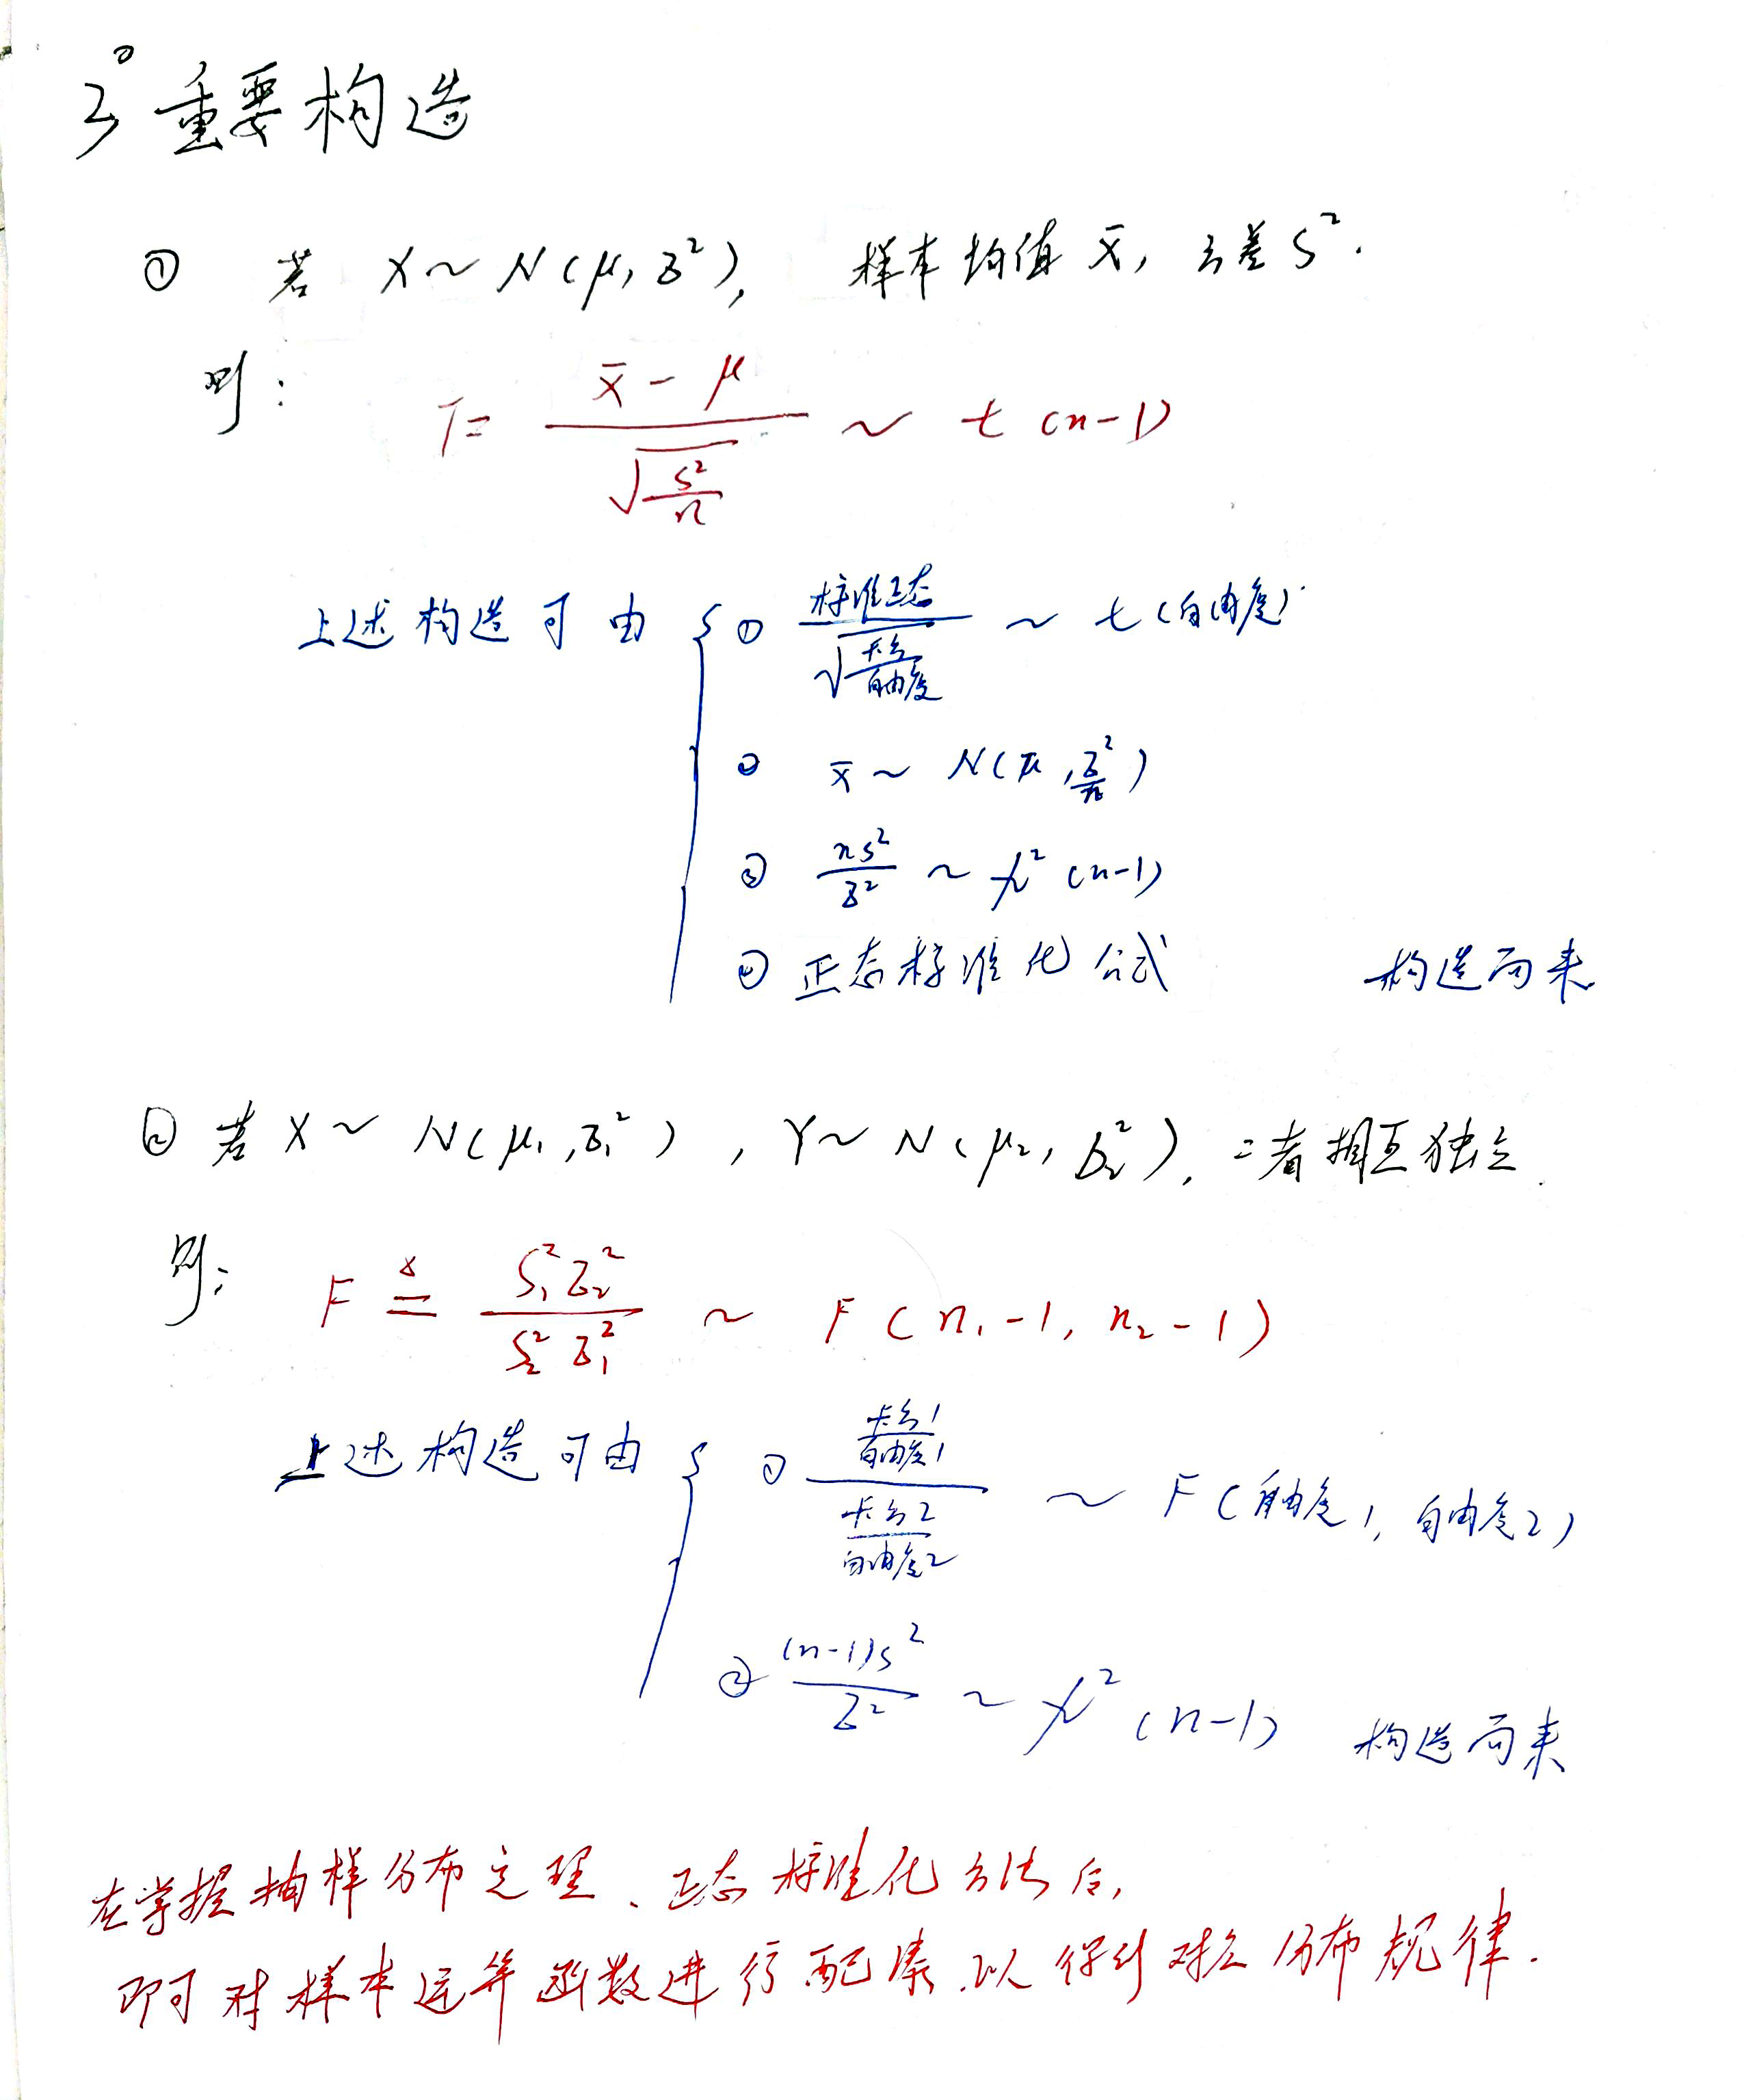 3° 重要构造
① 若 X ~ N(μ, σ²), 样本均值 x̄, 方差 S².
则: T = (x̄ - μ) / √(S²/n) ~ t(n-1)
上述构造可由 { ① 标准正态 / √(卡方/自由度) ~ t(自由度)
② x̄ ~ N(μ, σ²/n)
③ nS²/σ² ~ χ²(n-1)
④ 正态标准化公式 构造而来
② 若 X ~ N(μ₁, σ₁²), Y ~ N(μ₂, σ₂²), 二者相互独立.
则: F ≜ S₁²σ₂² / S₂²σ₁² ~ F(n₁-1, n₂-1)
上述构造可由 { ① (卡方1/自由度1) / (卡方2/自由度2) ~ F(自由度1, 自由度2)
② (n-1)S²/σ² ~ χ²(n-1) 构造而来
在掌握抽样分布定理、正态标准化方法后,
即可对样本运算函数进行配凑.以得到对应分布规律.